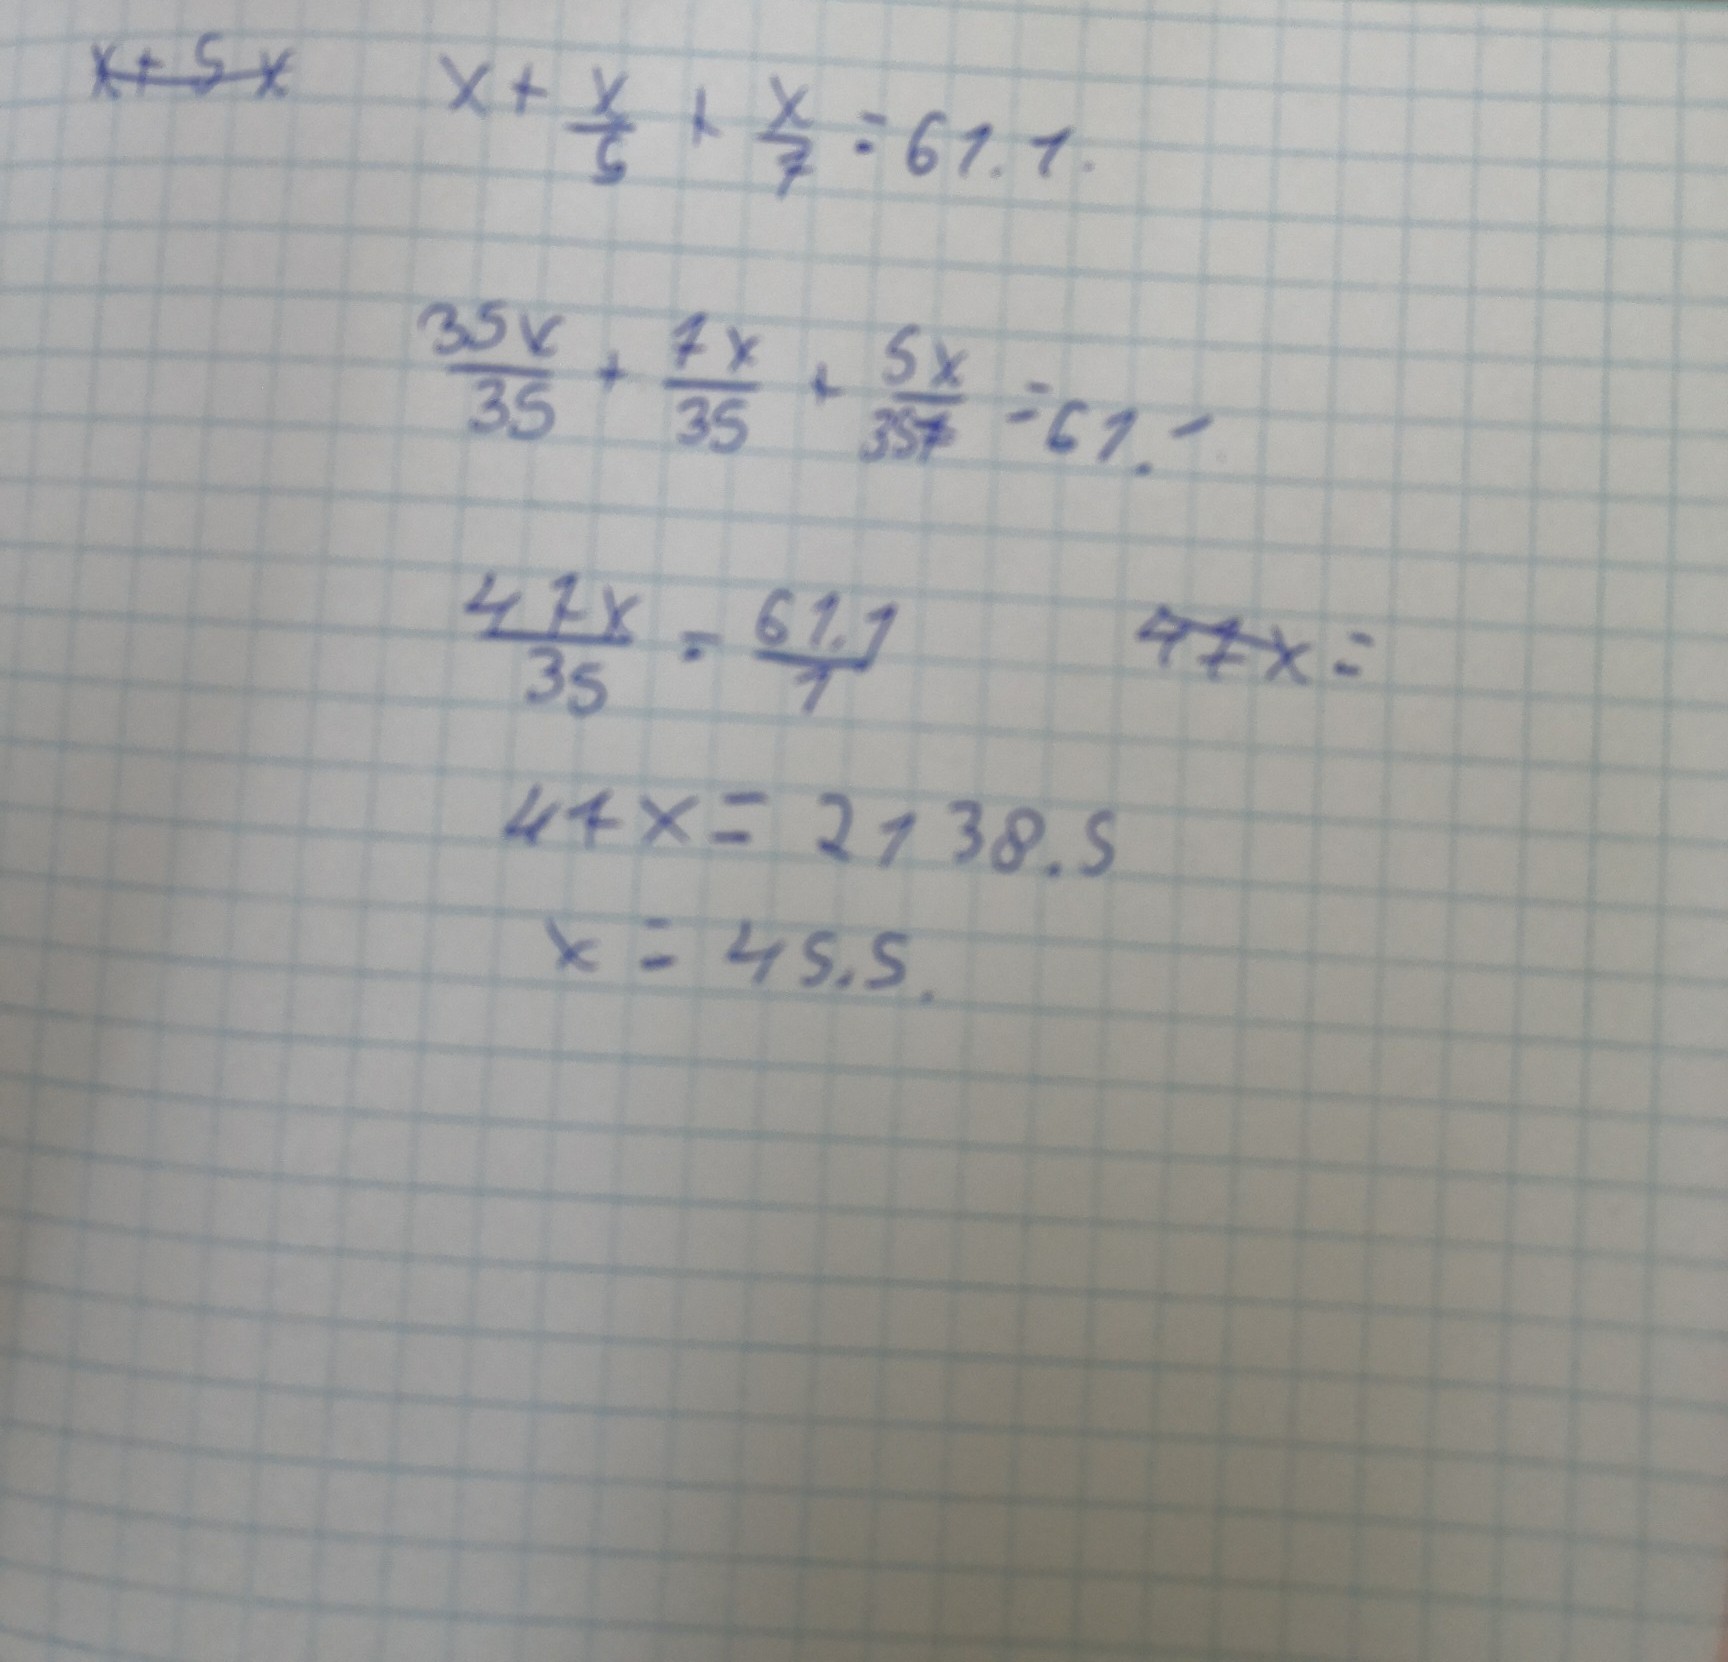 x+5x x + x/5 + x/7 = 61.1.
35x/35 + 7x/35 + 5x/357 = 61.1
47x/35 = 61.1/1 47x =
47x = 2138.5
x = 45.5.